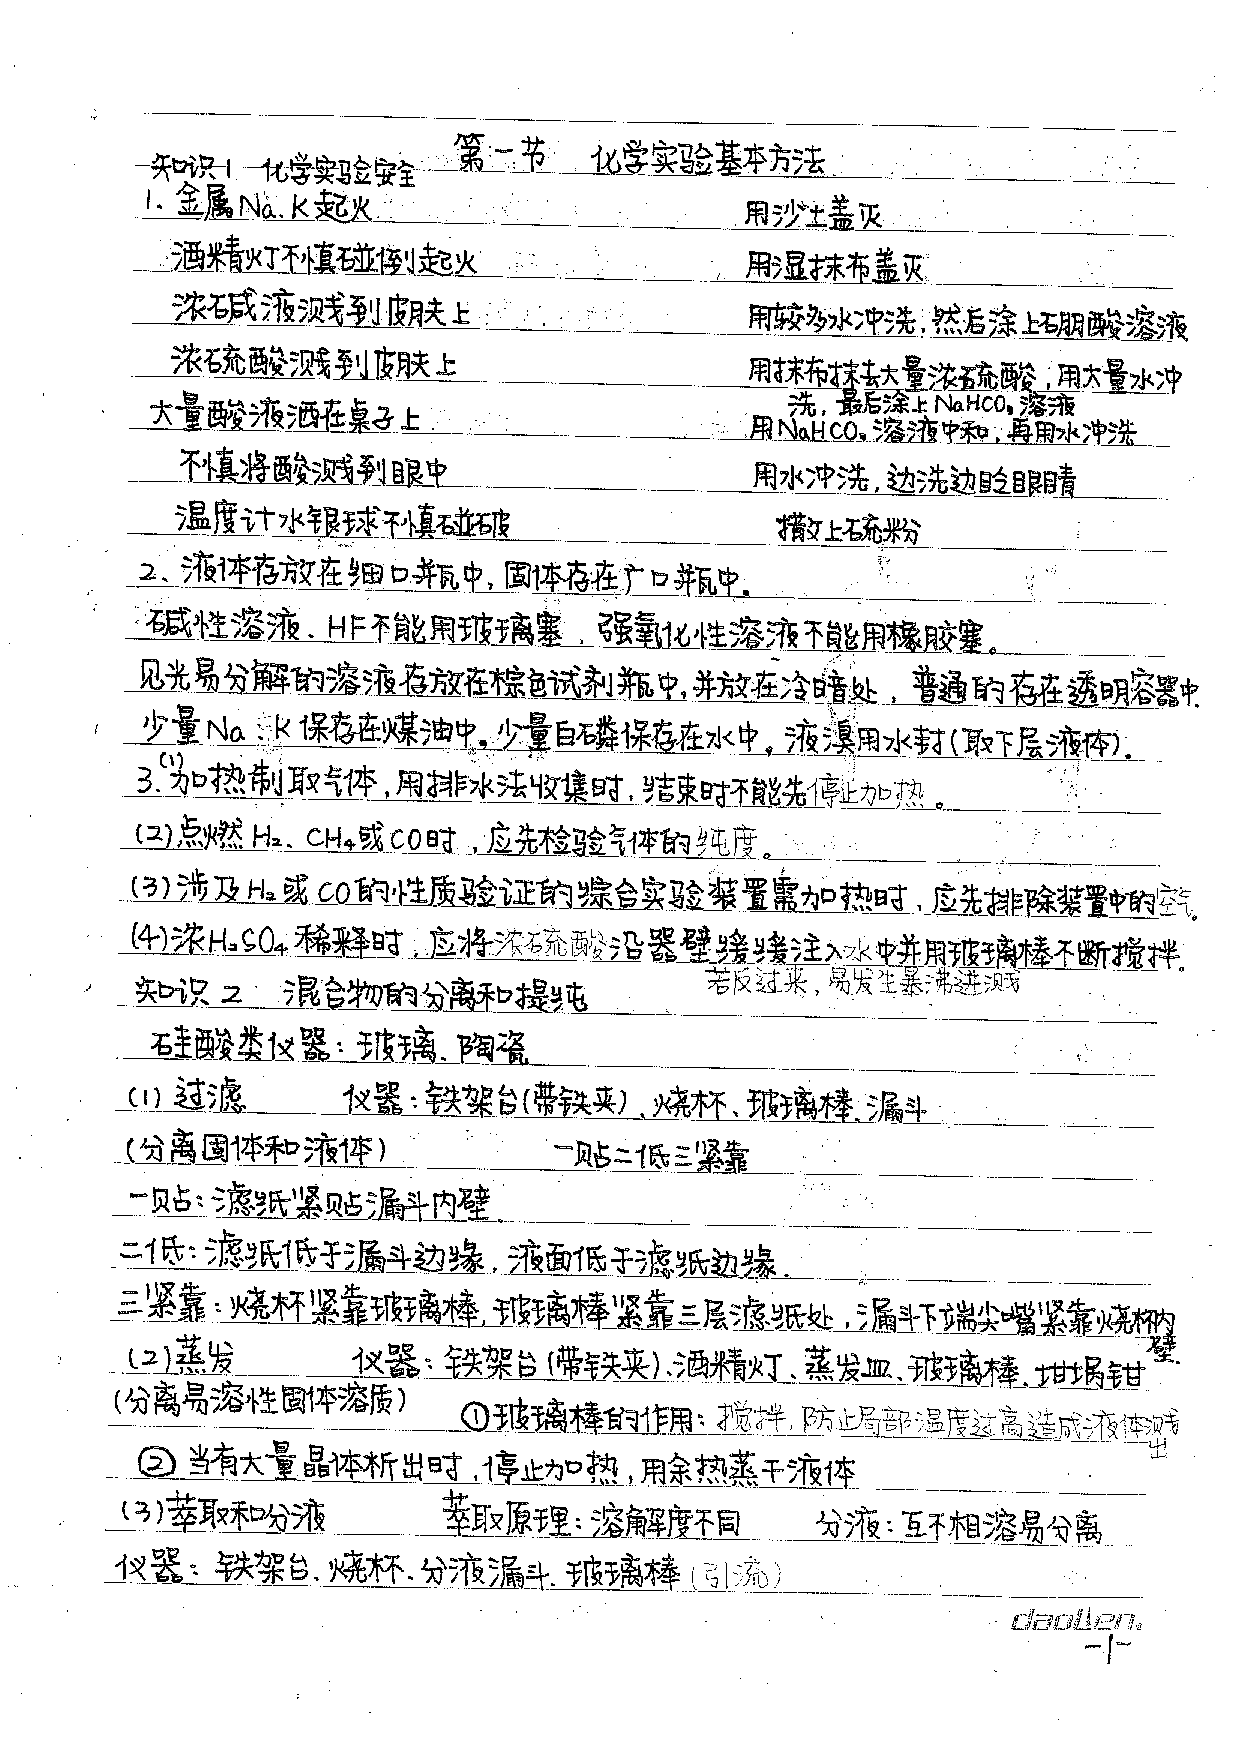 第一节 化学实验基本方法
知识1 化学实验安全
1、金属Na、K起火 用沙土盖灭
酒精灯不慎碰倒起火 用湿抹布盖灭
浓碱液溅到皮肤上 用较多水冲洗,然后涂上硼酸溶液
浓硫酸溅到皮肤上 用抹布抹去大量浓硫酸,用大量水冲
洗,最后涂上NaHCO₃溶液
大量酸液洒在桌子上 用NaHCO₃溶液中和,再用水冲洗
不慎将酸溅到眼中 用水冲洗,边洗边眨眼睛
温度计水银球不慎碰破 撒上硫粉
2、液体存放在细口瓶中,固体存在广口瓶中。
碱性溶液、HF不能用玻璃塞,强氧化性溶液不能用橡胶塞。
见光易分解的溶液存放在棕色试剂瓶中,并放在冷暗处,普通的存在透明容器中.
少量Na、K保存在煤油中。少量白磷保存在水中。液溴用水封(取下层液体).
3.(1)加热制取气体,用排水法收集时,结束时不能先停止加热。
(2)点燃H₂、CH₄或CO时,应先检验气体的纯度。
(3)涉及H₂或CO的性质验证的综合实验装置需加热时,应先排除装置中的空气。
(4)浓H₂SO₄稀释时,应将浓硫酸沿器壁缓缓注入水中并用玻璃棒不断搅拌。
若反过来,易发生暴沸迸溅
知识2 混合物的分离和提纯
硅酸类仪器:玻璃、陶瓷
(1)过滤 仪器:铁架台(带铁夹)、烧杯、玻璃棒、漏斗
(分离固体和液体) 一贴二低三紧靠
一贴:滤纸紧贴漏斗内壁
二低:滤纸低于漏斗边缘,液面低于滤纸边缘.
三紧靠:烧杯紧靠玻璃棒,玻璃棒紧靠三层滤纸处,漏斗下端尖嘴紧靠烧杯内
壁.
(2)蒸发 仪器:铁架台(带铁夹)、酒精灯、蒸发皿、玻璃棒、坩埚钳
(分离易溶性固体溶质) ①玻璃棒的作用:搅拌,防止局部温度过高造成液体溅
出
②当有大量晶体析出时,停止加热,用余热蒸干液体
(3)萃取和分液 萃取原理:溶解度不同 分液:互不相溶易分离
仪器:铁架台、烧杯、分液漏斗、玻璃棒(引流)
daolien.
-1-